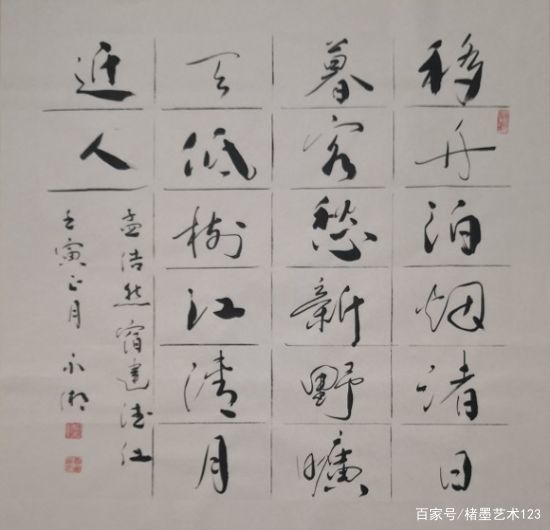 移舟泊烟渚日
暮客愁新野曠
天低树江清月
近人
孟浩然宿建德江
壬寅正月永湘
百家号/楮墨艺术123